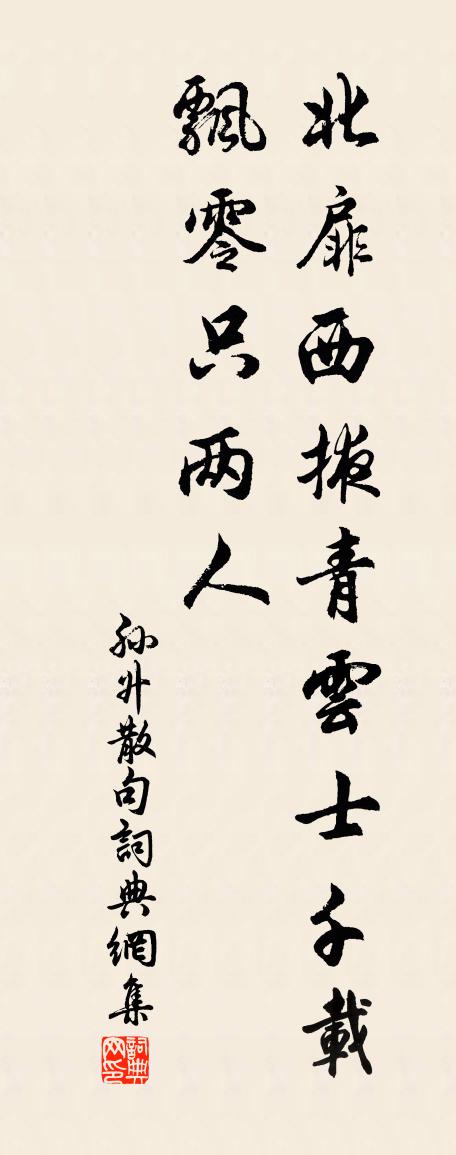 北扉西掖青雲士千載
飄零只两人
孙升散句詞典網集
詞典网印